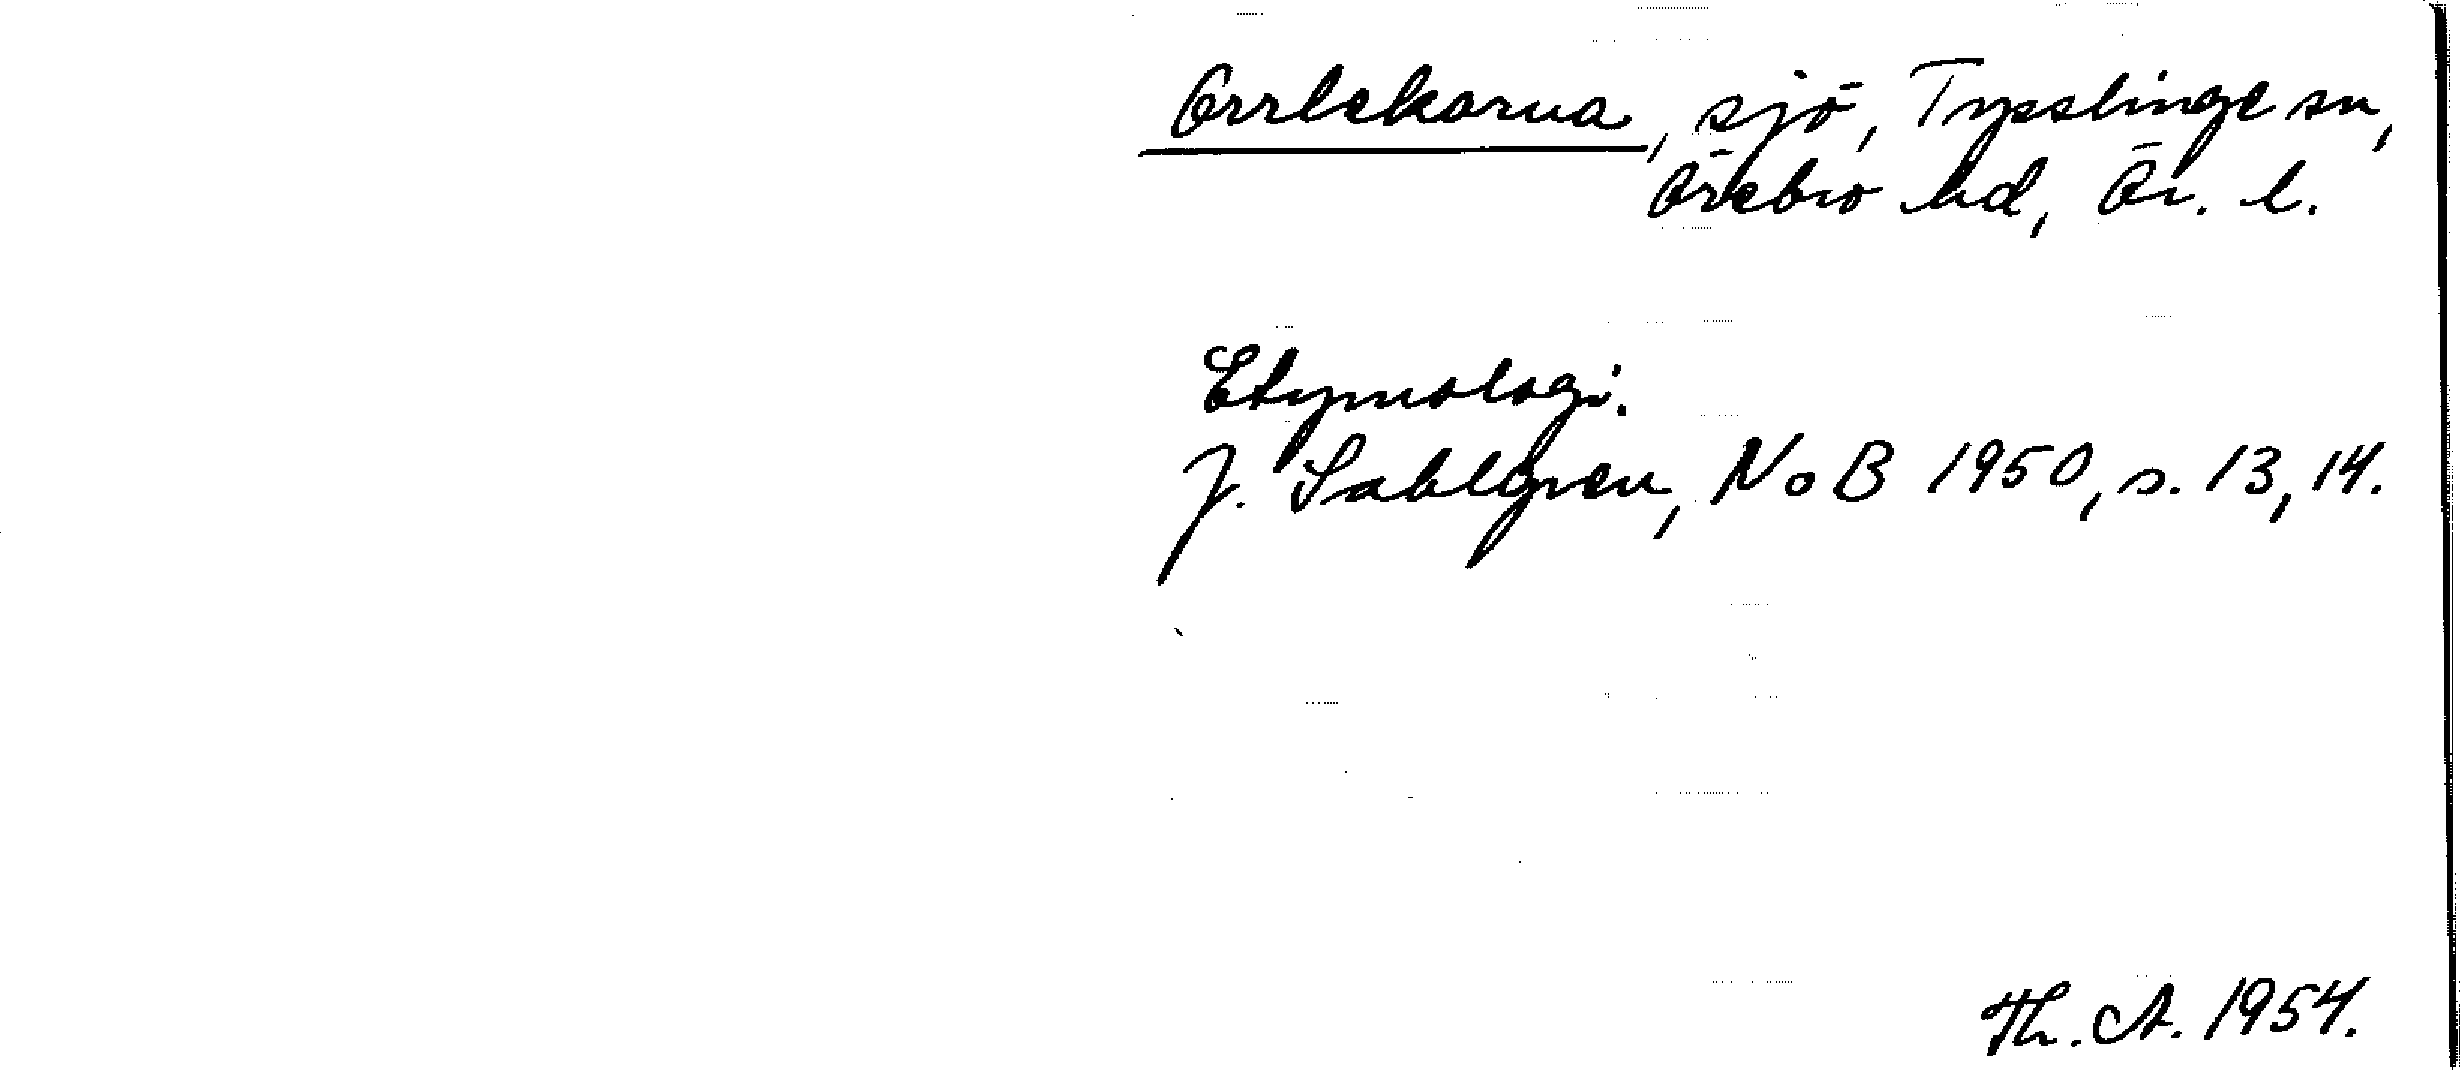 Orrlekarna, sjö, Tysslinge sn,
Örebro hd, Ör. l.
Etymologi.
J. Sahlgren, NoB 1950, s. 13, 14.
Th. A. 1954.